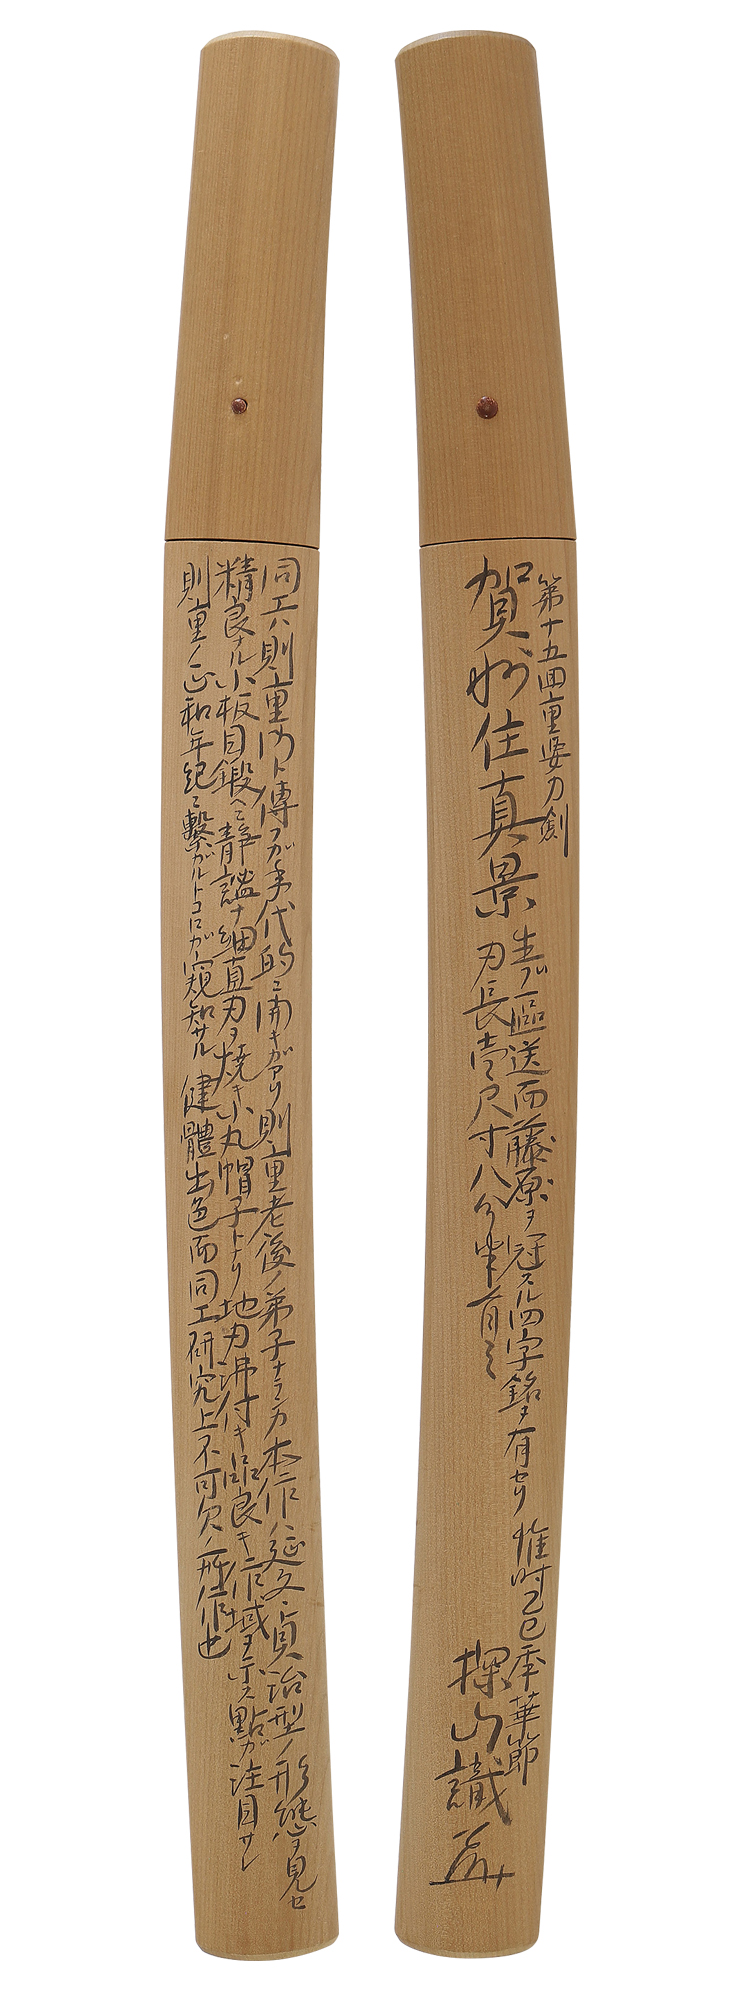 第十五回重要刀剣
賀州住真景
生ブ區送而藤原ヲ冠スル四字銘ヲ有セリ
刃長壱尺寸八分半有之
惟時乙巳季華節
探山識
同工ハ則重門ト傳フガ年代的ニ開キガアリ則重老後ノ弟子ナランカ本作ハ延文、貞治型ノ形態ヲ見セ
精良ナル小板目鍛ヘニ静謐ナ細直刃ヲ焼キ小丸帽子トナリ地刃沸付キ品良キ作域ヲ示ス點ガ注目サレ
則重ノ正和年紀ニ繋ガルトコロガ窺知サル 健體出色而同工研究上不可欠ノ一作也